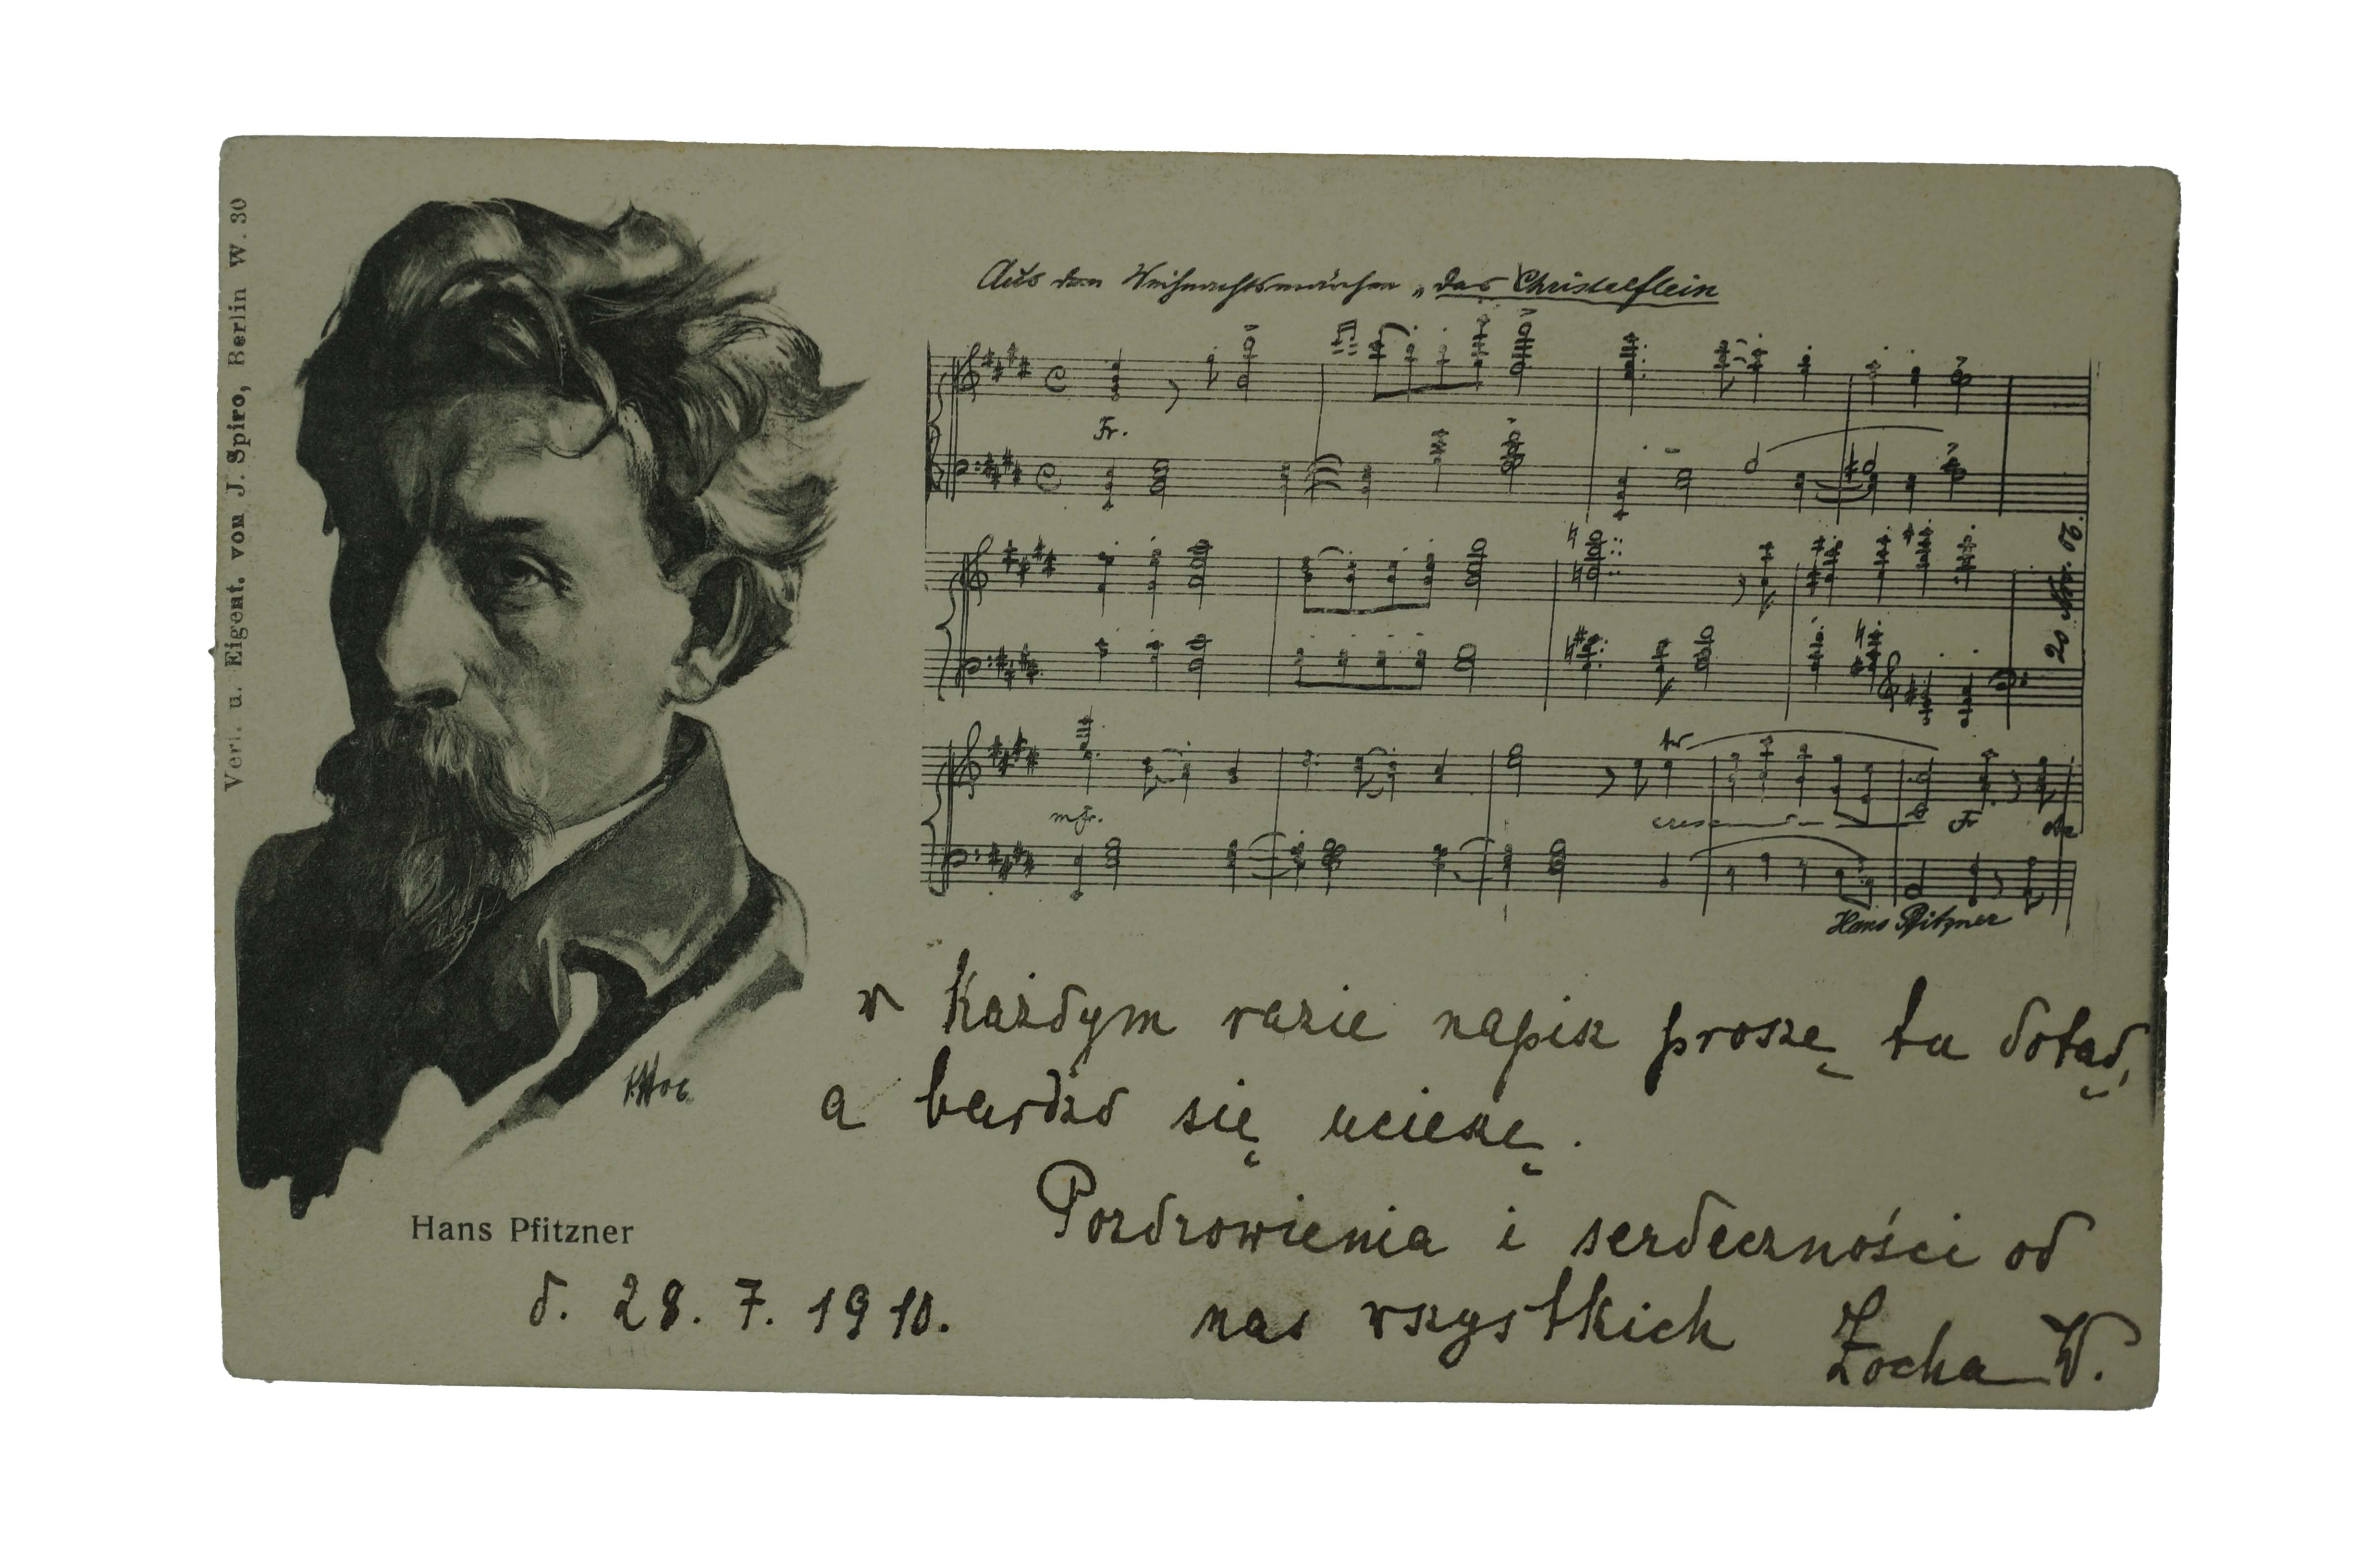 Verl. u. Eigent. von J. Spiro, Berlin W. 30
Aus dem Weihnachtsmärchen „das Christelflein
Fr.
mfr.
tr
cresc
Fr
Hans Pfitzner
Hans Pfitzner
d. 28. 7. 1910.
w każdym razie napisz proszę tu dotąd,
a bardzo się ucieszę.
Pozdrowienia i serdeczności od
nas wszystkich Zocha W.